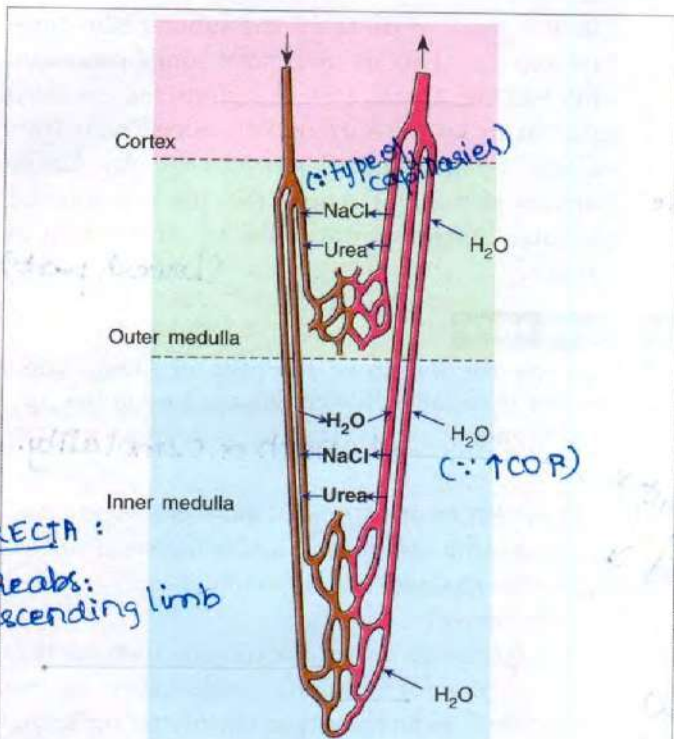 Cortex
(∵ type of
capillaries)
NaCl
Urea
H₂O
Outer medulla
H₂O
H₂O
(∵ ↑COP)
NaCl
Urea
Inner medulla
RECTA :
Reabs:
scending limb
H₂O